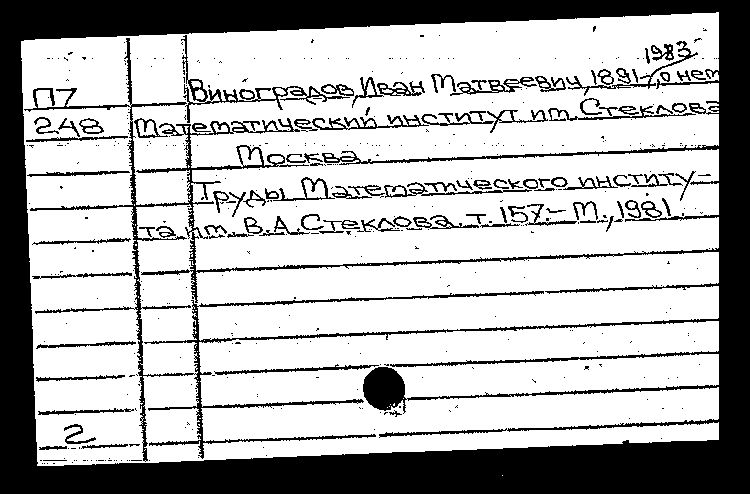 1983
П7 Виноградов, Иван Матвеевич, 1891-, о нем
248 Математический институт им. Стеклова
Москва.
Труды Математического институ-
та им. В.А. Стеклова. т. 157.- М., 1981.
2